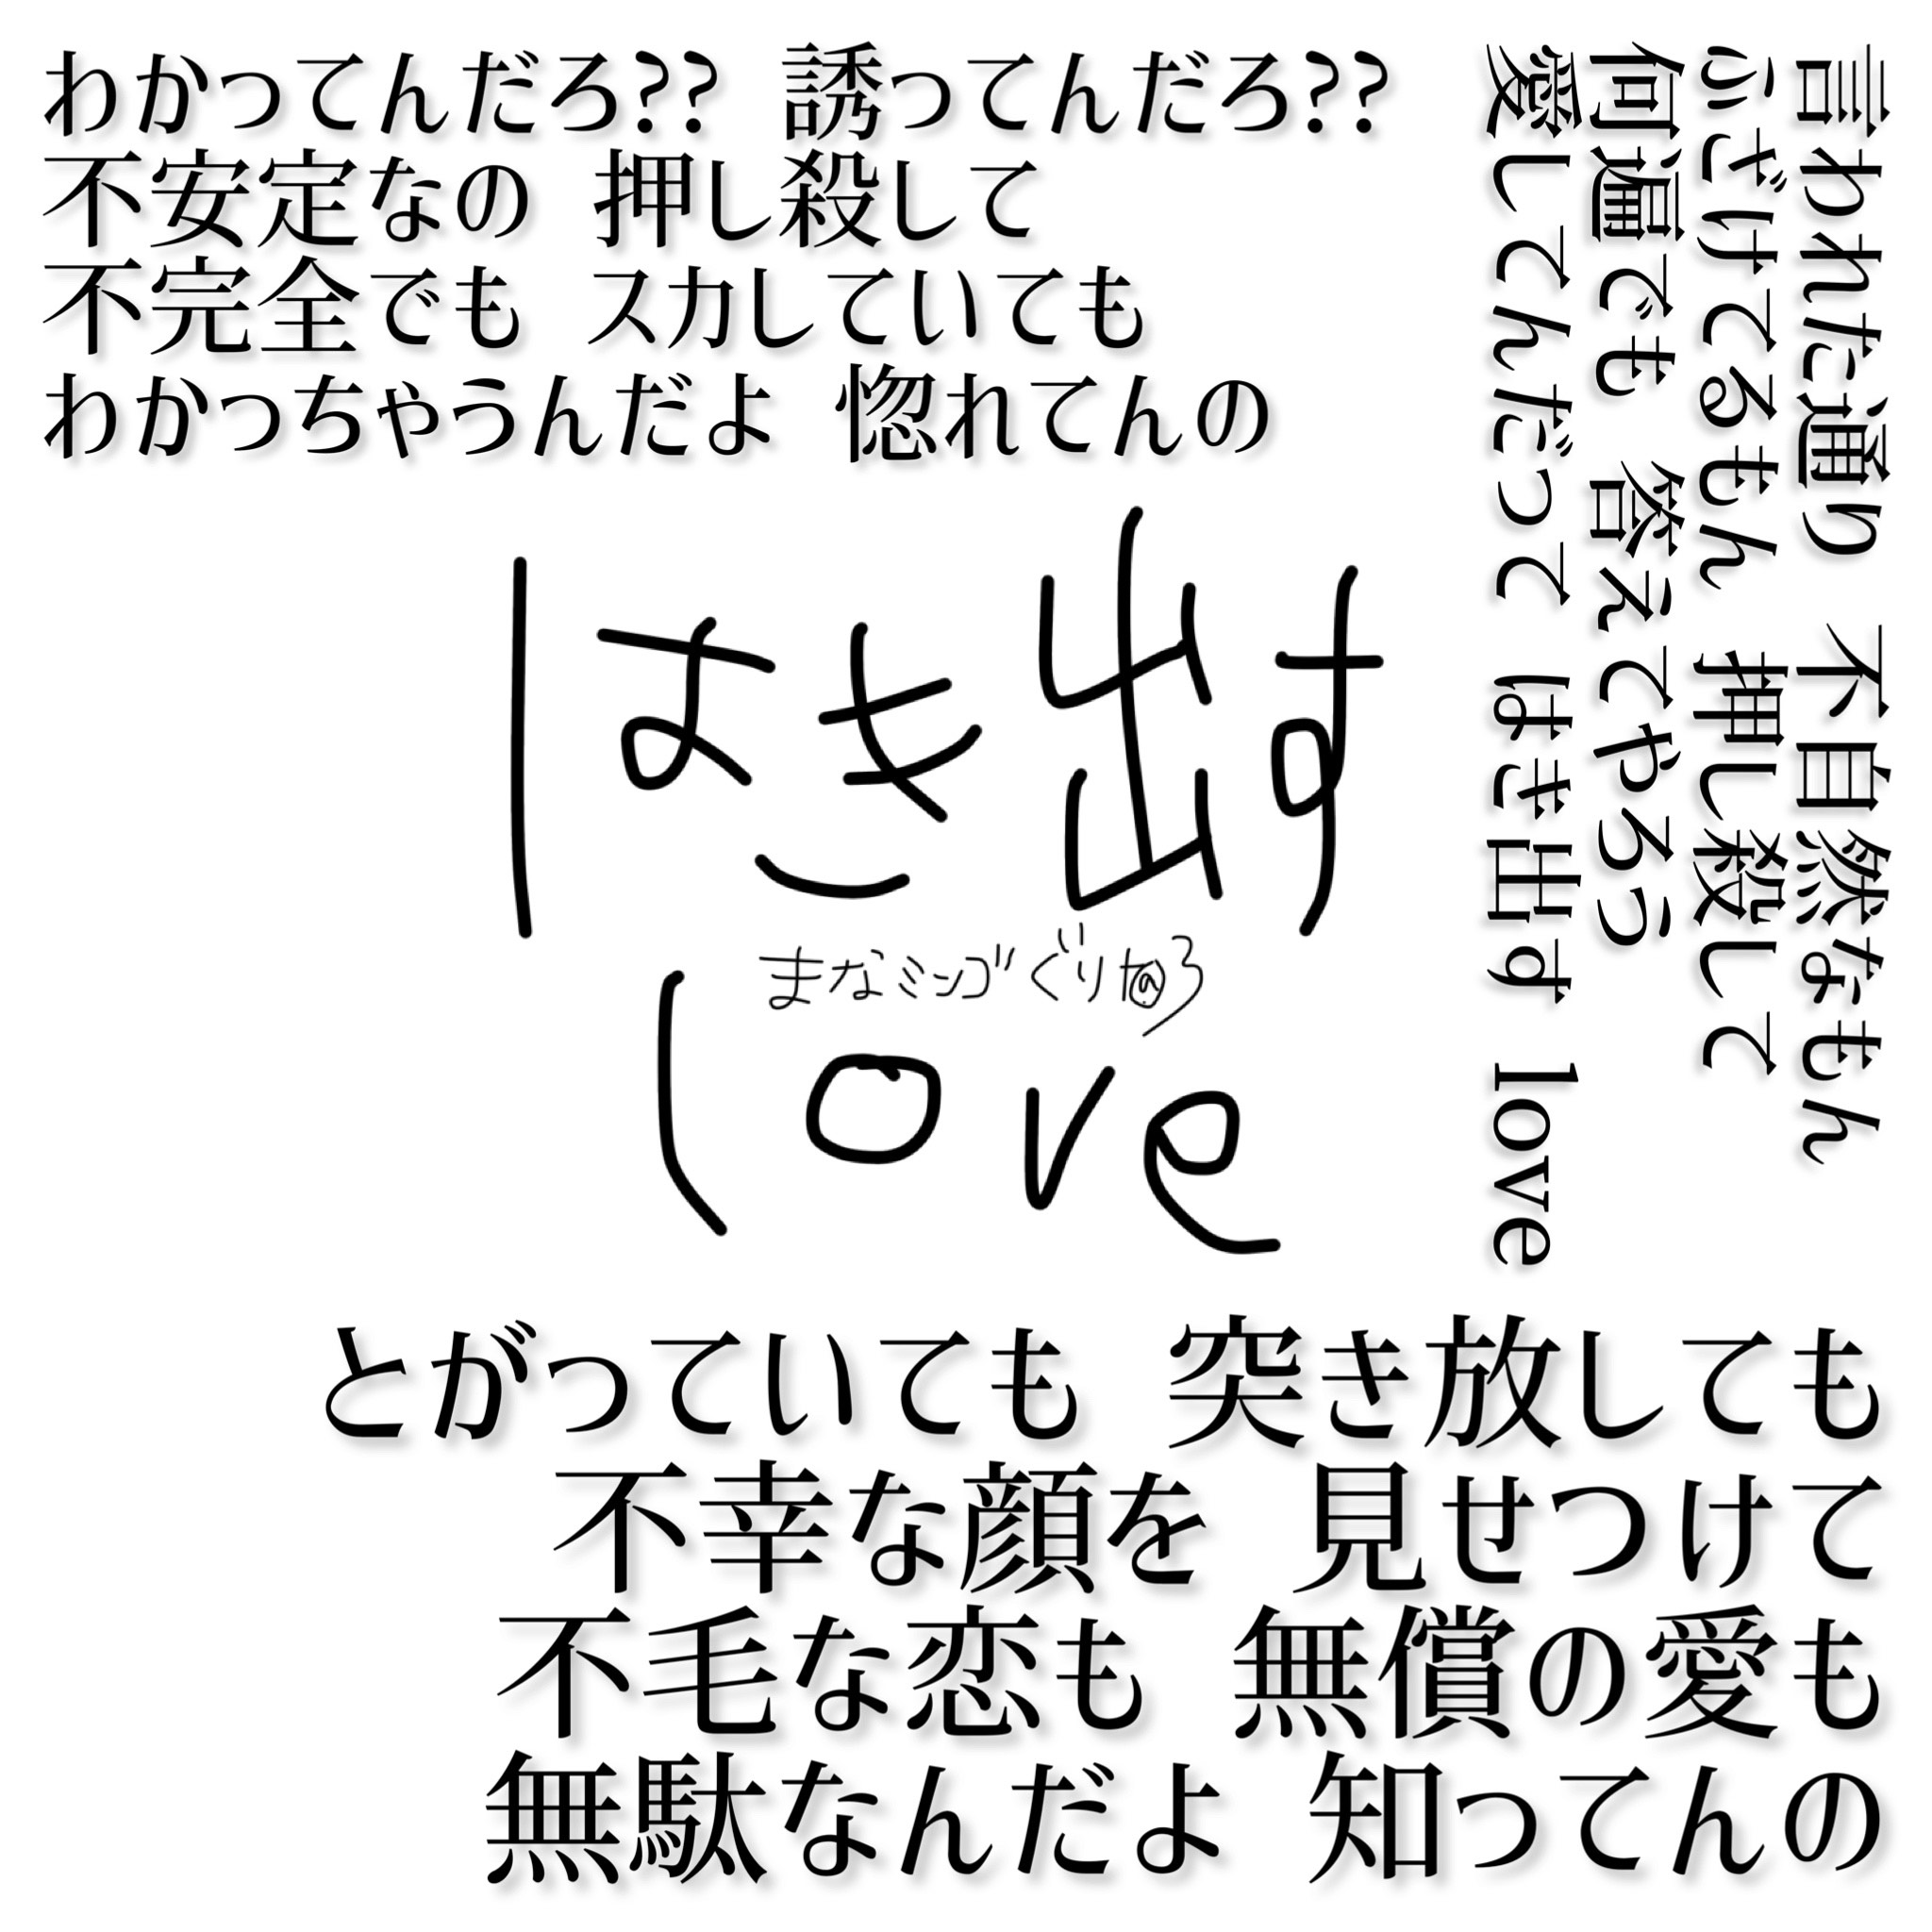 わかってんだろ?? 誘ってんだろ??
不安定なの 押し殺して
不完全でも スカしていても
わかっちゃうんだよ 惚れてんの
言われた通り 不自然なもん
ふざけてるもん 押し殺して
何遍でも 答えてやろう
愛してんだって はき出す love
はき出す
love
とがっていても 突き放しても
不幸な顔を 見せつけて
不毛な恋も 無償の愛も
無駄なんだよ 知ってんの